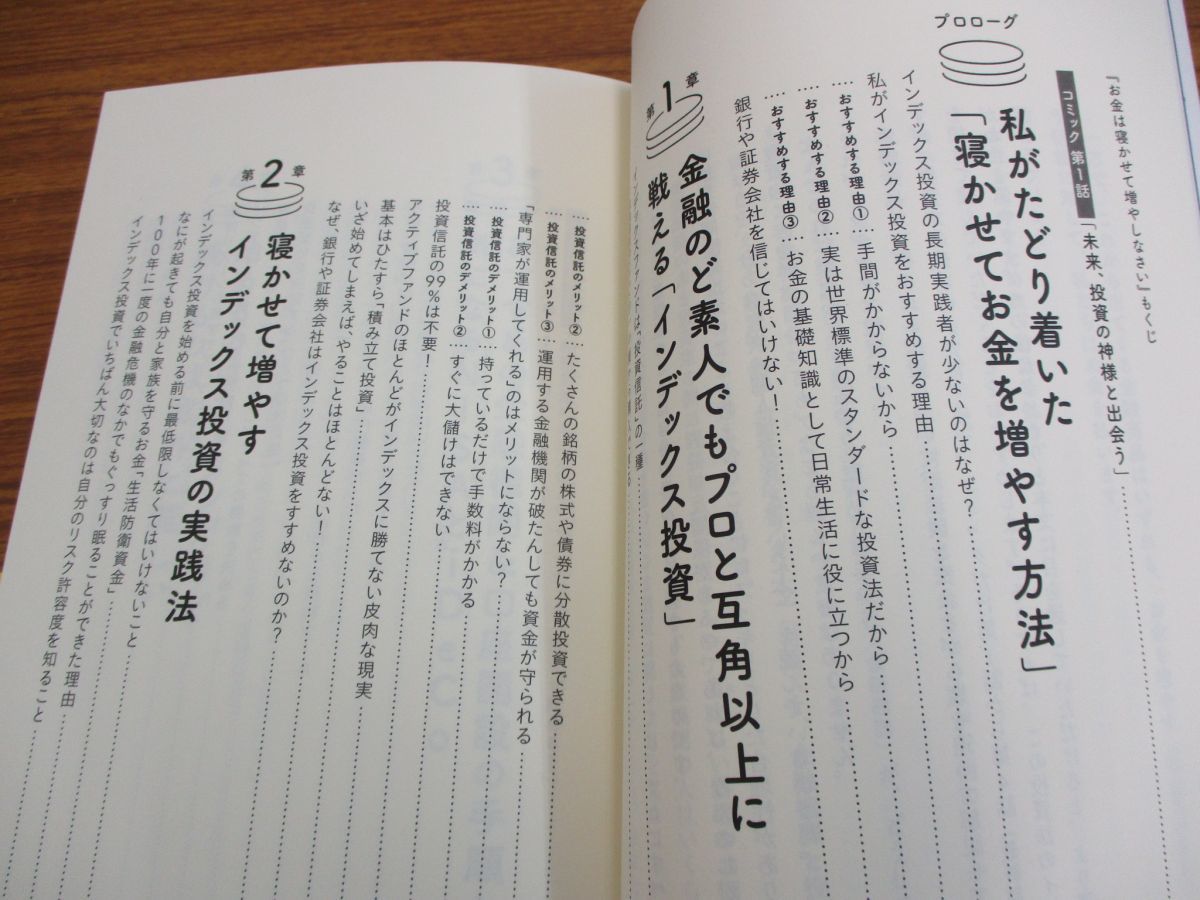 『お金は寝かせて増やしなさい』もくじ
コミック 第1話 「未来、投資の神様と出会う」
プロローグ
私がたどり着いた
「寝かせてお金を増やす方法」
インデックス投資の長期実践者が少ないのはなぜ？
私がインデックス投資をおすすめする理由
おすすめする理由① 手間がかからないから
おすすめする理由② 実は世界標準のスタンダードな投資法だから
おすすめする理由③ お金の基礎知識として日常生活に役に立つから
銀行や証券会社を信じてはいけない！
第1章
金融のど素人でもプロと互角以上に
戦える「インデックス投資」
インデックスファンドは「投資信託」の一種
投資信託のメリット② たくさんの銘柄の株式や債券に分散投資できる
投資信託のメリット③ 運用する金融機関が破たんしても資金が守られる
「専門家が運用してくれる」のはメリットにならない？
投資信託のデメリット① 持っているだけで手数料がかかる
投資信託のデメリット② すぐに大儲けはできない
投資信託の99％は不要！
アクティブファンドのほとんどがインデックスに勝てない皮肉な現実
基本はひたすら「積み立て投資」
いざ始めてしまえば、やることはほとんどない！
なぜ、銀行や証券会社はインデックス投資をすすめないのか？
第2章
寝かせて増やす
インデックス投資の実践法
インデックス投資を始める前に最低限しなくてはいけないこと
なにが起きても自分と家族を守るお金「生活防衛資金」
100年に一度の金融危機のなかでもぐっすり眠ることができた理由
インデックス投資でいちばん大切なのは自分のリスク許容度を知ること